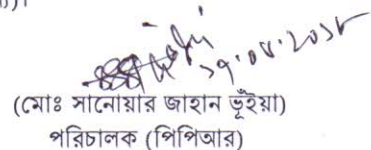 ১৭.০৪.২০১৮
(মোঃ সানোয়ার জাহান ভূঁইয়া)
পরিচালক (পিপিআর)